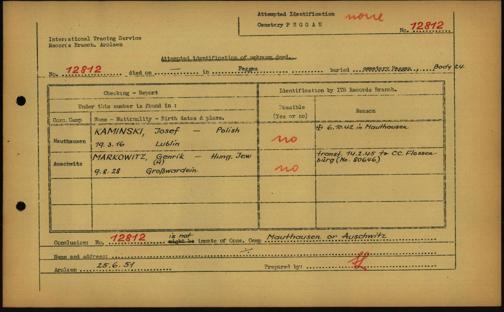 Attempted Identification none
Cemetery PEGGAU
No. 12812
International Tracing Service
Records Branch, Arolsen
Attempted identification of unknown dead.
No. 12812 died on — in Peggau buried cemetery Peggau, Body 24.
Checking - Report
Identification by ITS Records Branch.
Under this number is found in :
Possible (Yes or no)
Reason
Conc. Camp
Name - Nationality - Birth dates & place.
Mauthausen
KAMINSKI, Josef — Polish
19.3.16 Lublin
no
✝ 6.10.42 in Mauthausen
Auschwitz
MARKOWITZ, Genrik — Hung. Jew
(H)
9.8.28 Großwardein
no
transf. 14.2.45 to CC. Flossenbürg (No. 80646)
is not
Conclusion: No. 12812 might be inmate of Conc. Camp Mauthausen or Auschwitz
Name and address:
Arolsen 25.6.51
Prepared by: